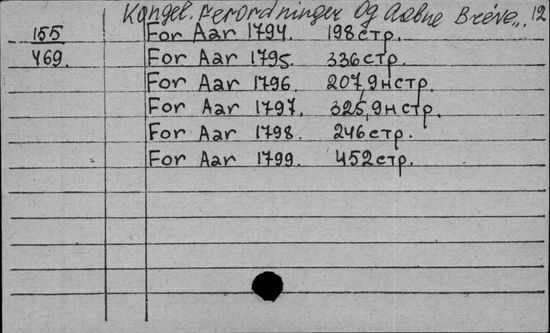 Kongel. Ferordninger Og Aabne Breve... 12
155 For Aar 1794. 198 стр.
469. For Aar 1795. 336 стр.
For Aar 1796. 207, 9н стр.
For Aar 1797. 325, 9н стр.
For Aar 1798. 246 стр.
For Aar 1799. 452 стр.